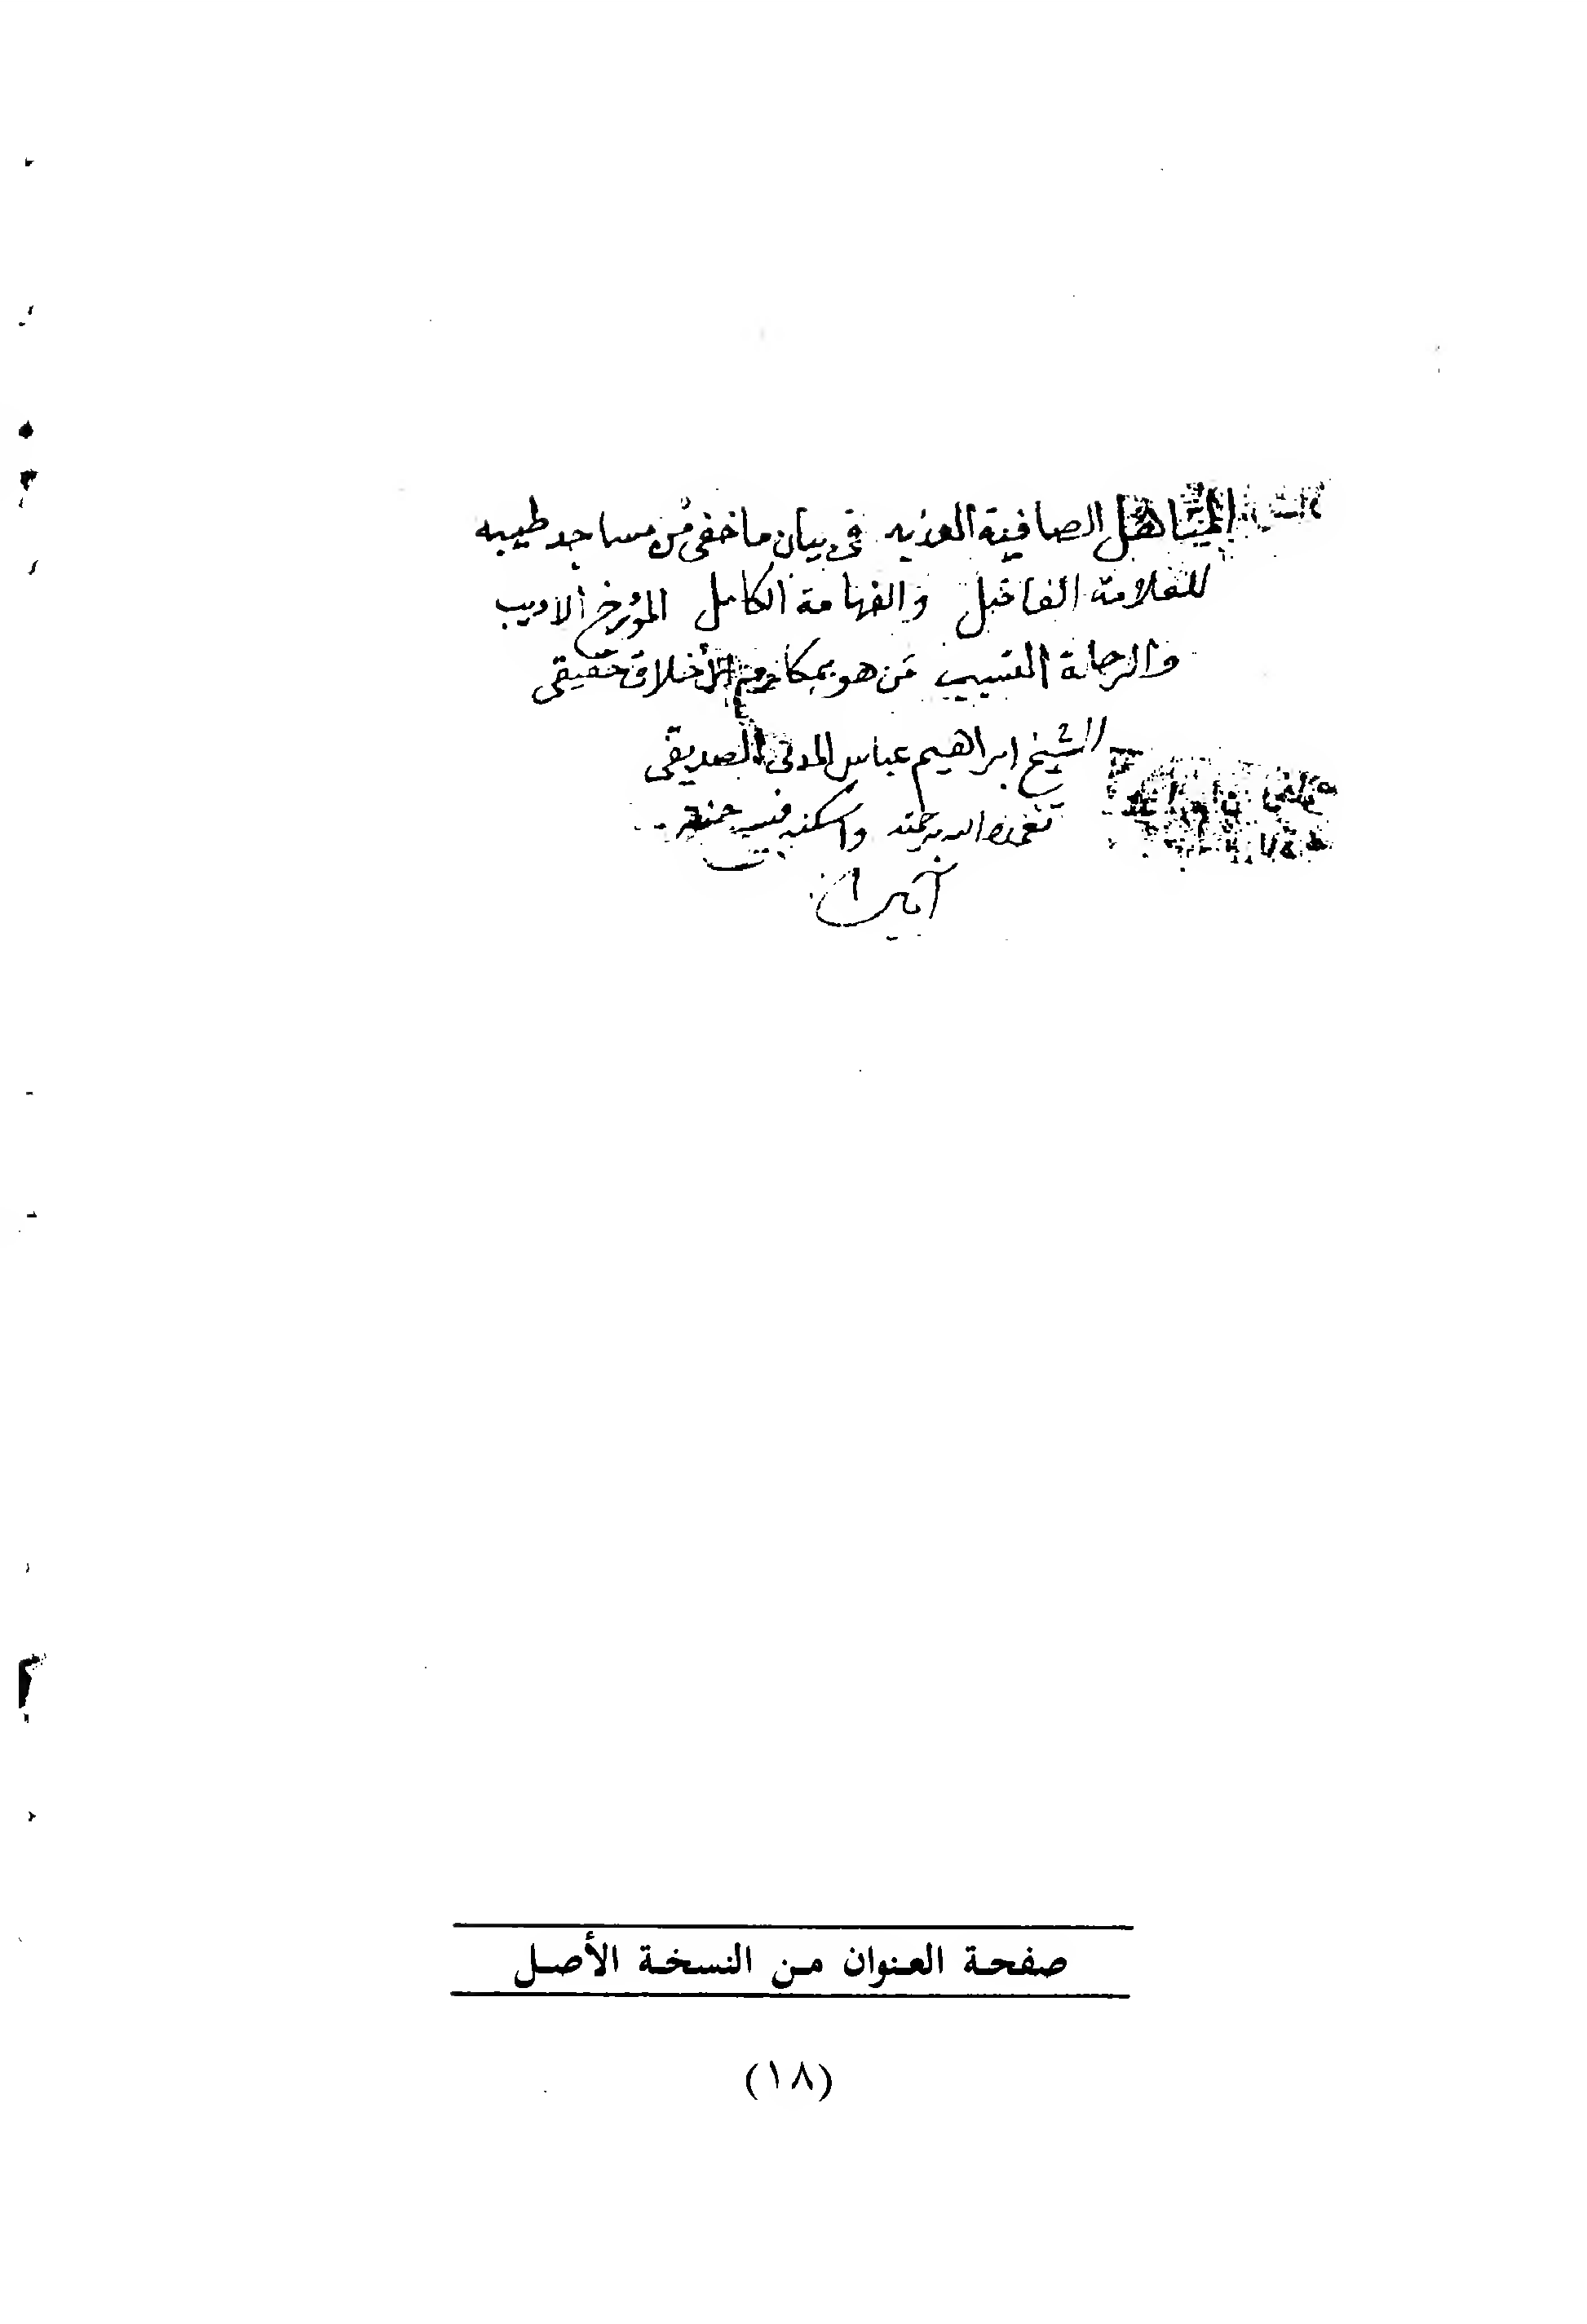 المناهل الصافية العذبه في بيان ما خفي من مساجد طيبه
للعلامة الفاضل والفهامة الكامل المؤرخ الاديب
والرحالة النسيب من هو بمكارم الأخلاق حقيقي
الشيخ ابراهيم عباس المدني الصديقي
تغمده الله برحمته واسكنه فسيح جنته
آمين
صفحة العنوان من النسخة الأصل
(١٨)